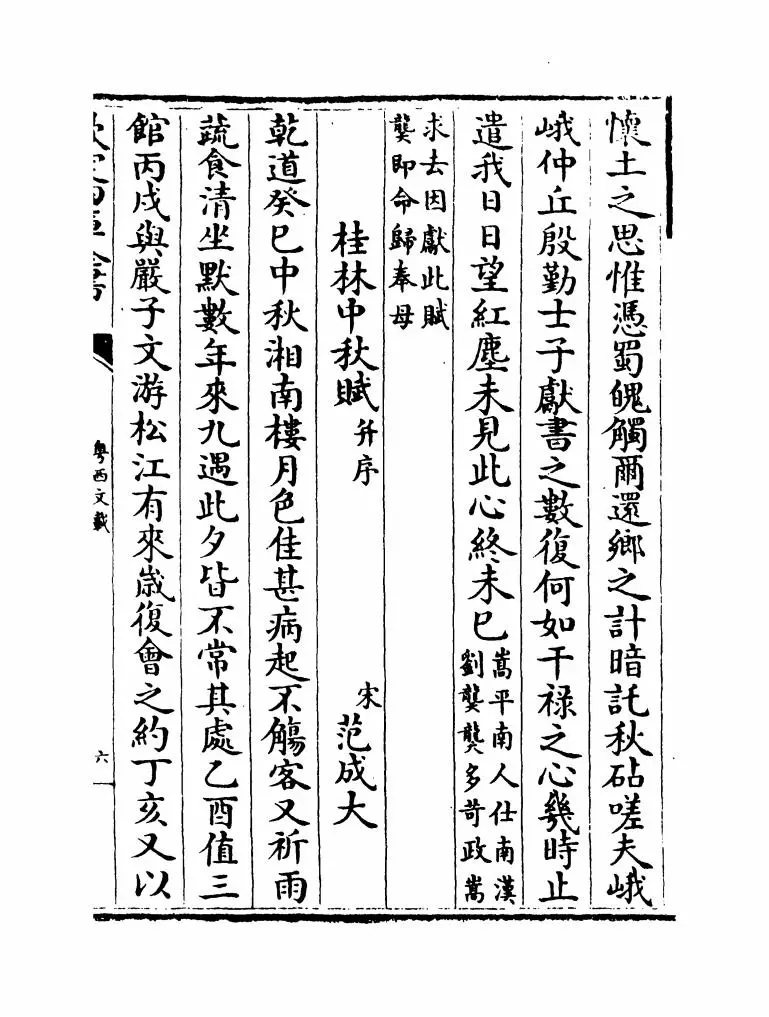 懷土之思惟憑蜀魄觸爾還鄉之計暗託秋砧嗟夫峨
峨仲丘殷勤士子獻書之數復何如干禄之心幾時止
遣我日日望紅塵未見此心終未已
嵩平南人仕南漢
劉龑龑多苛政嵩
求去因獻此賦
龑即命歸奉母
桂林中秋賦并序
宋范成大
乾道癸巳中秋湘南樓月色佳甚病起不觴客又祈雨
蔬食清坐默數年來九遇此夕皆不常其處乙酉值三
館丙戌與嚴子文游松江有來嵗復會之約丁亥又以
欽定四庫全書
粤西文載
六